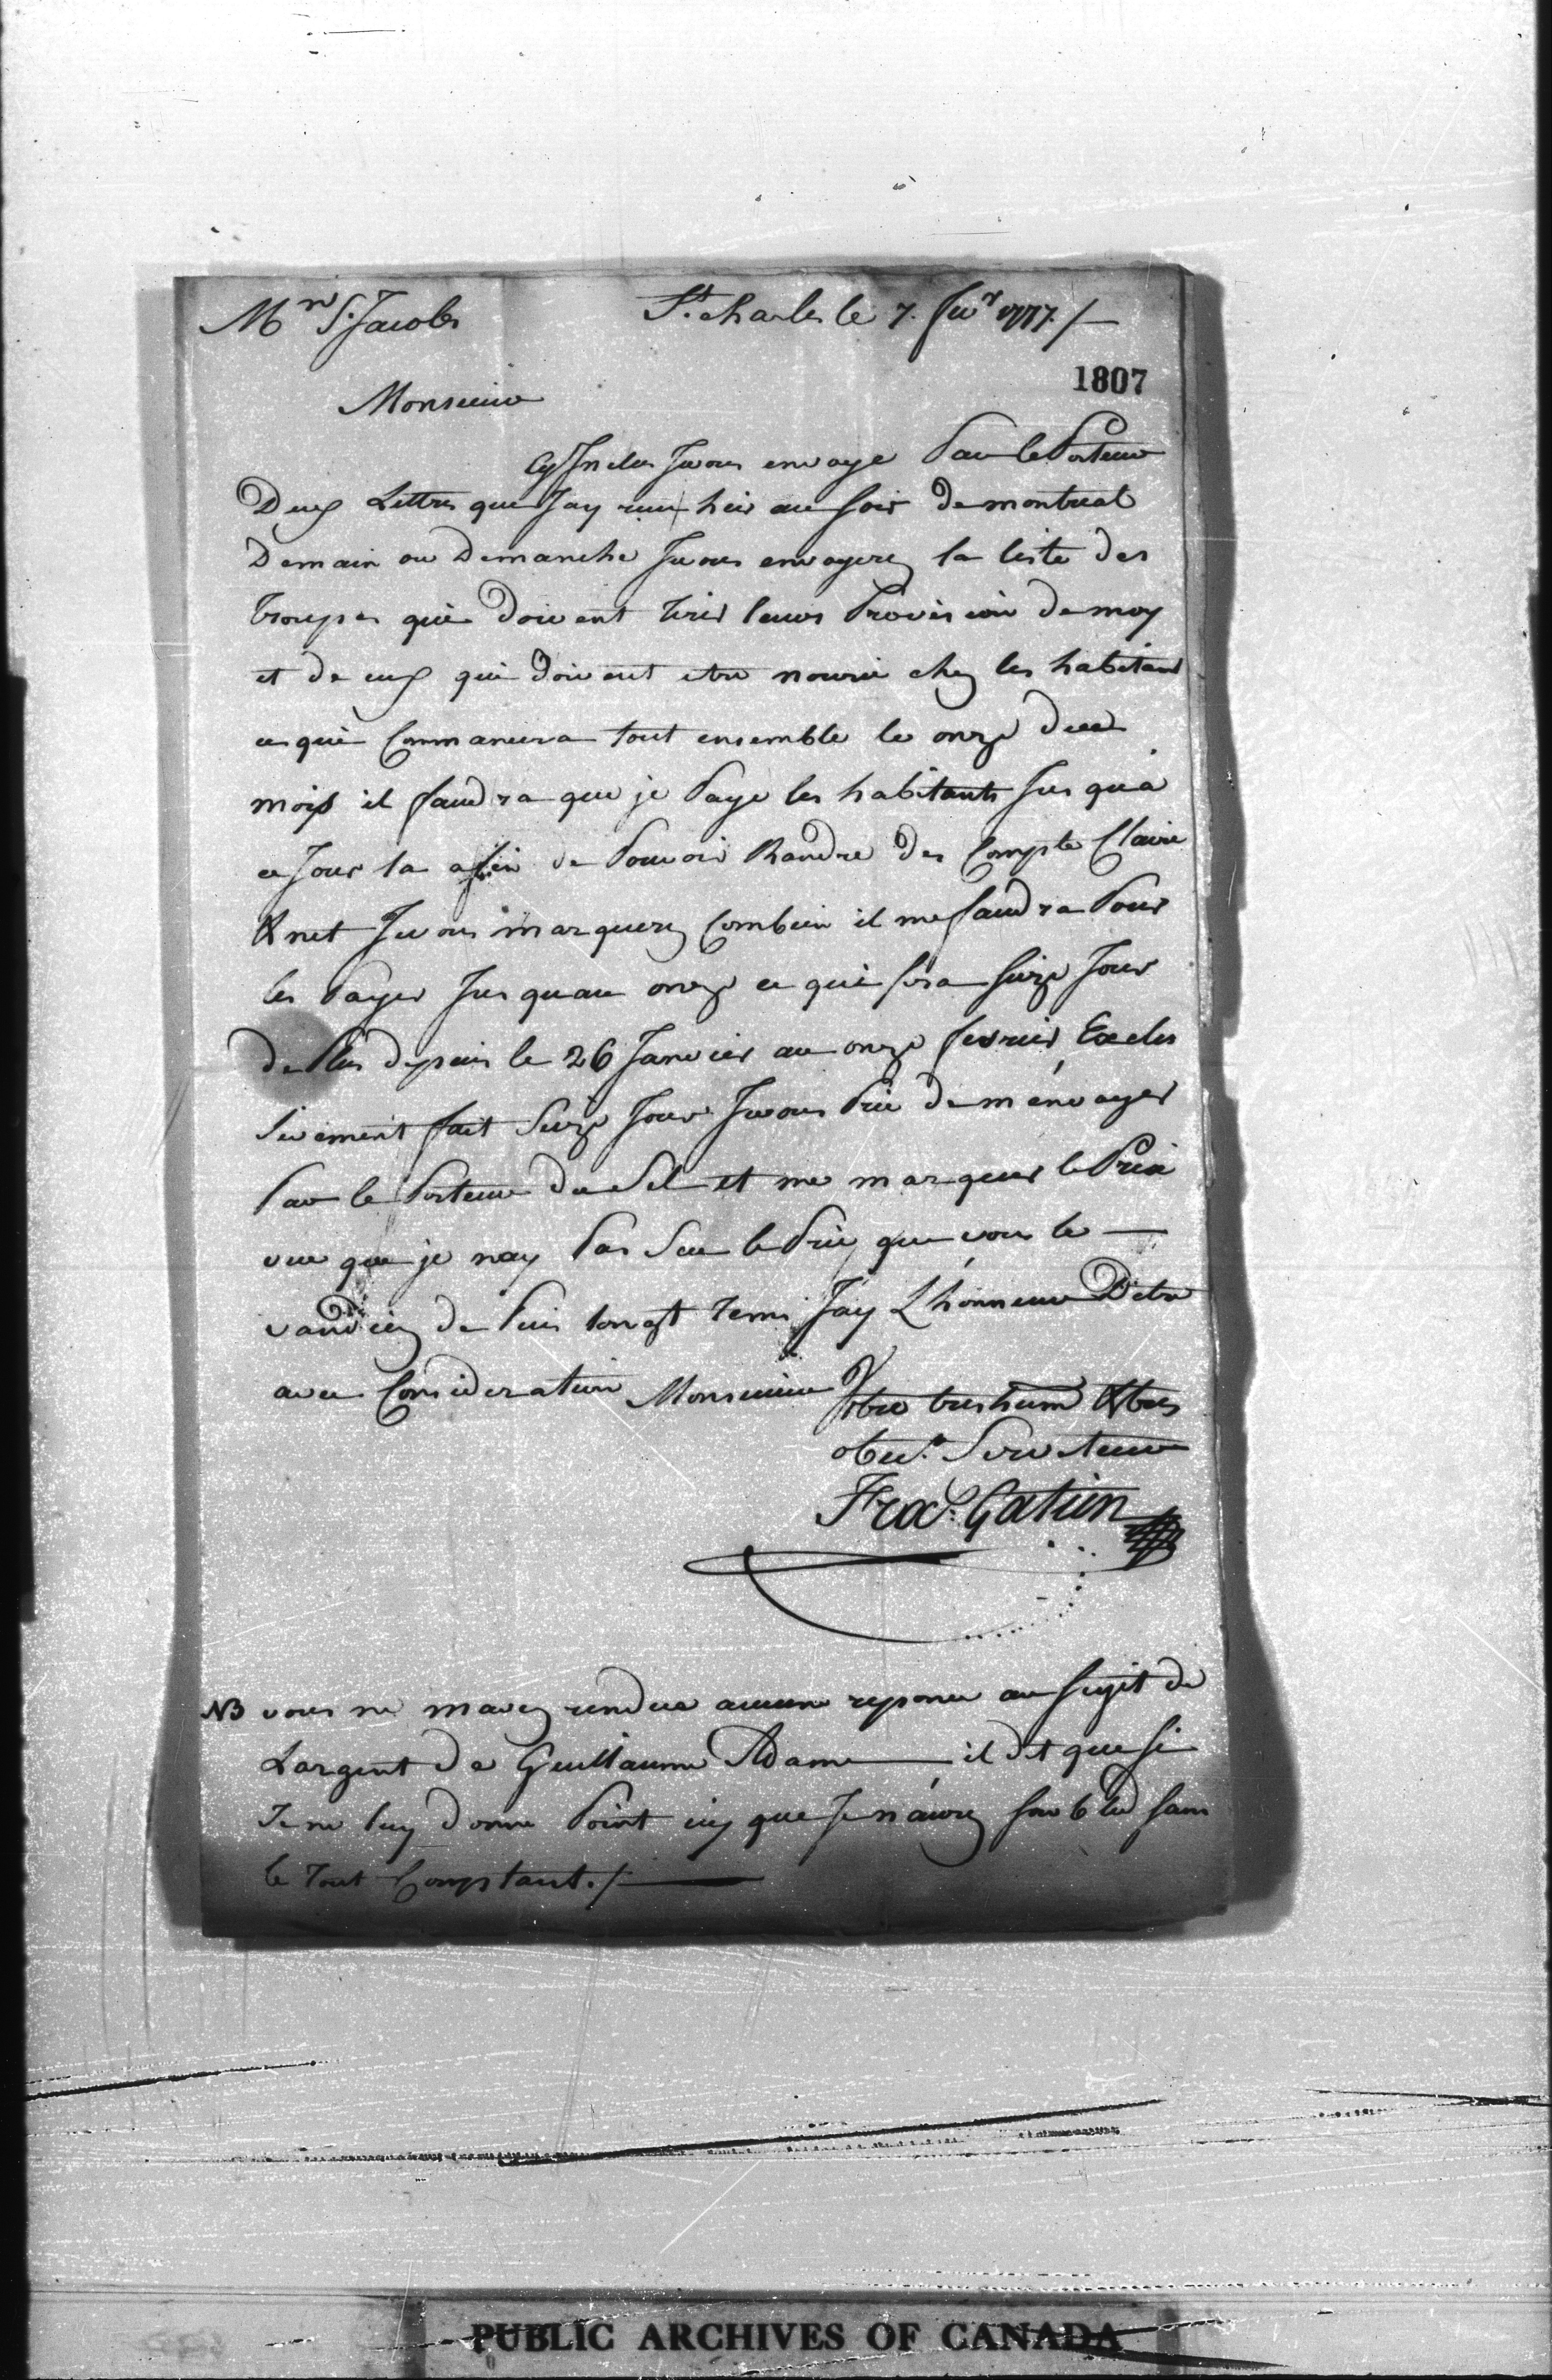 Mr S. Jacobs St. charles le 7. fevr 1777. /
1807
Monsieur
Cy Inclus Jevous envoye Par le Porteur
Deux Lettres que Jay reçu hier au soir de montreal
Demain ou Demanche Jevous envoyerez la liste des
troupes qui doivent tirer leurs Provision de moy
et de ceux qui doivent etre nourie chez les habitans
ce qui Commancera tout ensemble le onze du
mois il faudra que je Paye les habitants Jusqua
ce Jour la afin de Pouvoir Randre des Compte Claire
& net Jevous marquerez Combien il me faudra Pour
les Payer Jusquau onze ce qui fera seize Jour
de Plus depuis le 26 Janvier au onze fevrier Exclu
sivement fait seize Jour Jevous Prie de m'envoyer
Par le Porteur du Sel et me marquer le Prix
vue que je nay Pas Sue le Prix que vous le
vandiez de Puis longt tems Jay L'honneur Detre
avec Consideration Monsieur Votre tres hum & tres
obeis. Serviteur
Fra.s Gatien
NB vous ne mavez rendue aucune reponce au sujet de
Largent de Guillaume Adame il dit que si
Je ne luy donne Point icy que Je n'aurez son bled sans
le tout Comptant. /
PUBLIC ARCHIVES OF CANADA